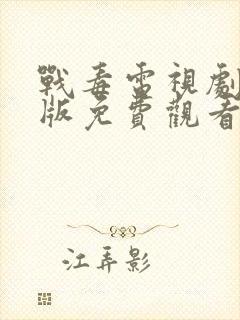 戰毒雷視劇
版免費觀看
江弄影